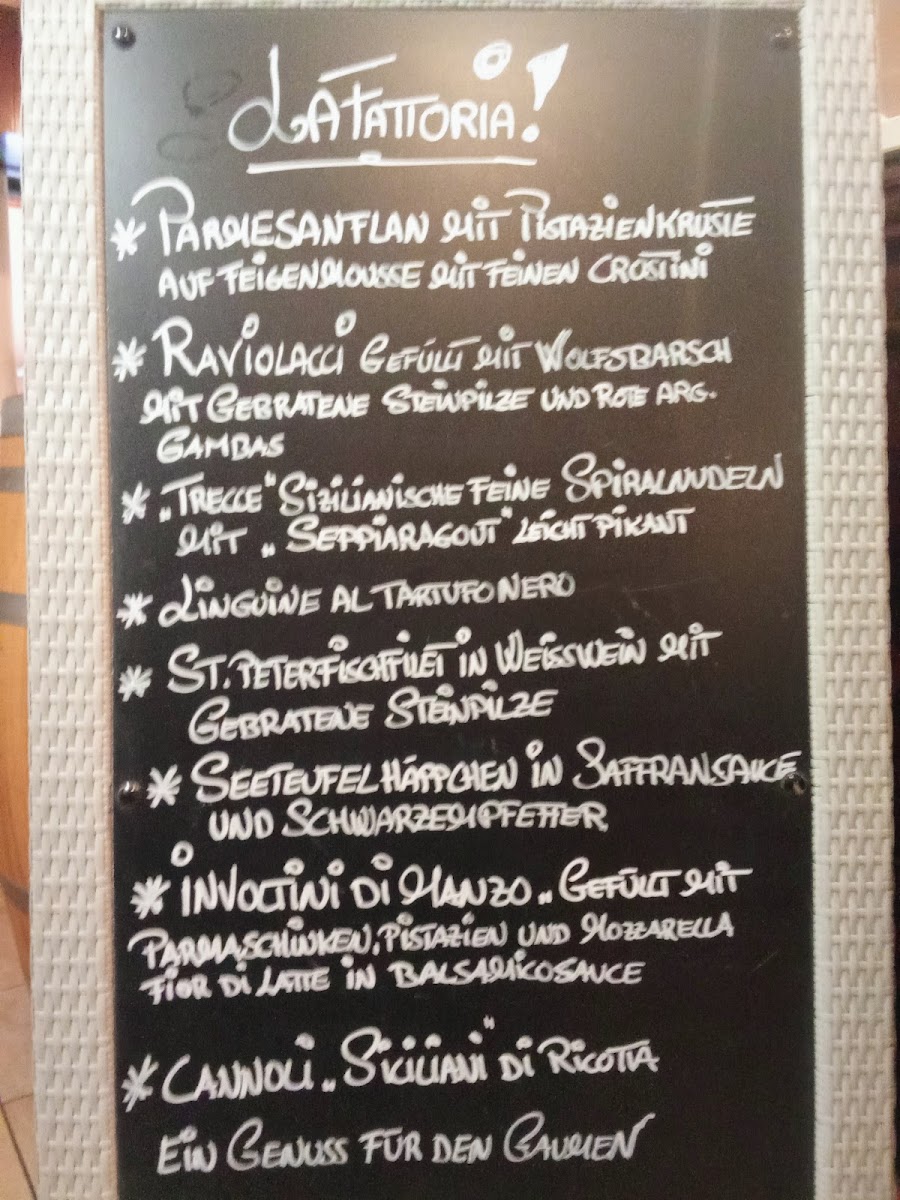 LA FATTORIA!
* PARMESANFLAN MIT PISTAZIENKRUSTE
AUF FEIGENMOUSSE MIT FEINEN CROSTINI
* RAVIOLACCI GEFÜLLT MIT WOLFSBARSCH
MIT GEBRATENE STEINPILZE UND ROTE ARG.
GAMBAS
* „TRECCE" SIZILIANISCHE FEINE SPIRALNUDELN
MIT „SEPPIARAGOUT" LEICHT PIKANT
* LINGUINE AL TARTUFO NERO
* ST. PETERFISCHFILET IN WEISSWEIN MIT
GEBRATENE STEINPILZE
* SEETEUFELHÄPPCHEN IN SAFFRANSAUCE
UND SCHWARZEMPFEFFER
* INVOLTINI DI MANZO „GEFÜLLT MIT
PARMASCHINKEN, PISTAZIEN UND MOZZARELLA
FIOR DI LATTE IN BALSAMICOSAUCE
* CANNOLI „SICILIANI" DI RICOTTA
EIN GENUSS FÜR DEN GAUMEN